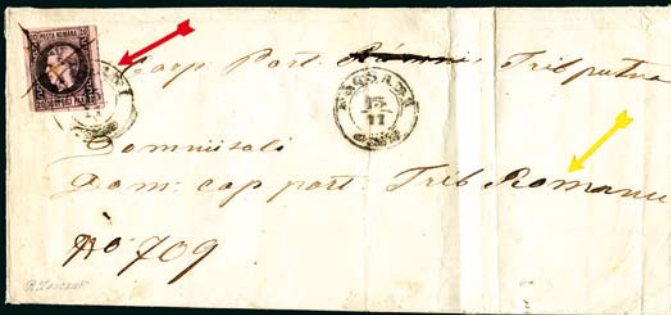 POSTA ROMANA
20 20
Corp Port Trib putna
FOCSANI
13/11
Domniisali
Dom: cap port: Trib Romanu
No 709